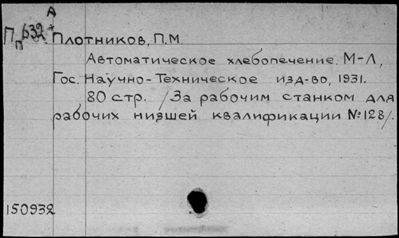 А
П п 632
Плотников, П.М
Автоматическое хлебопечение, М-Л,
Гос. Научно-Техническое изд-во, 1931.
80 стр. /За рабочим станком для
рабочих низшей квалификации №128/.
150932